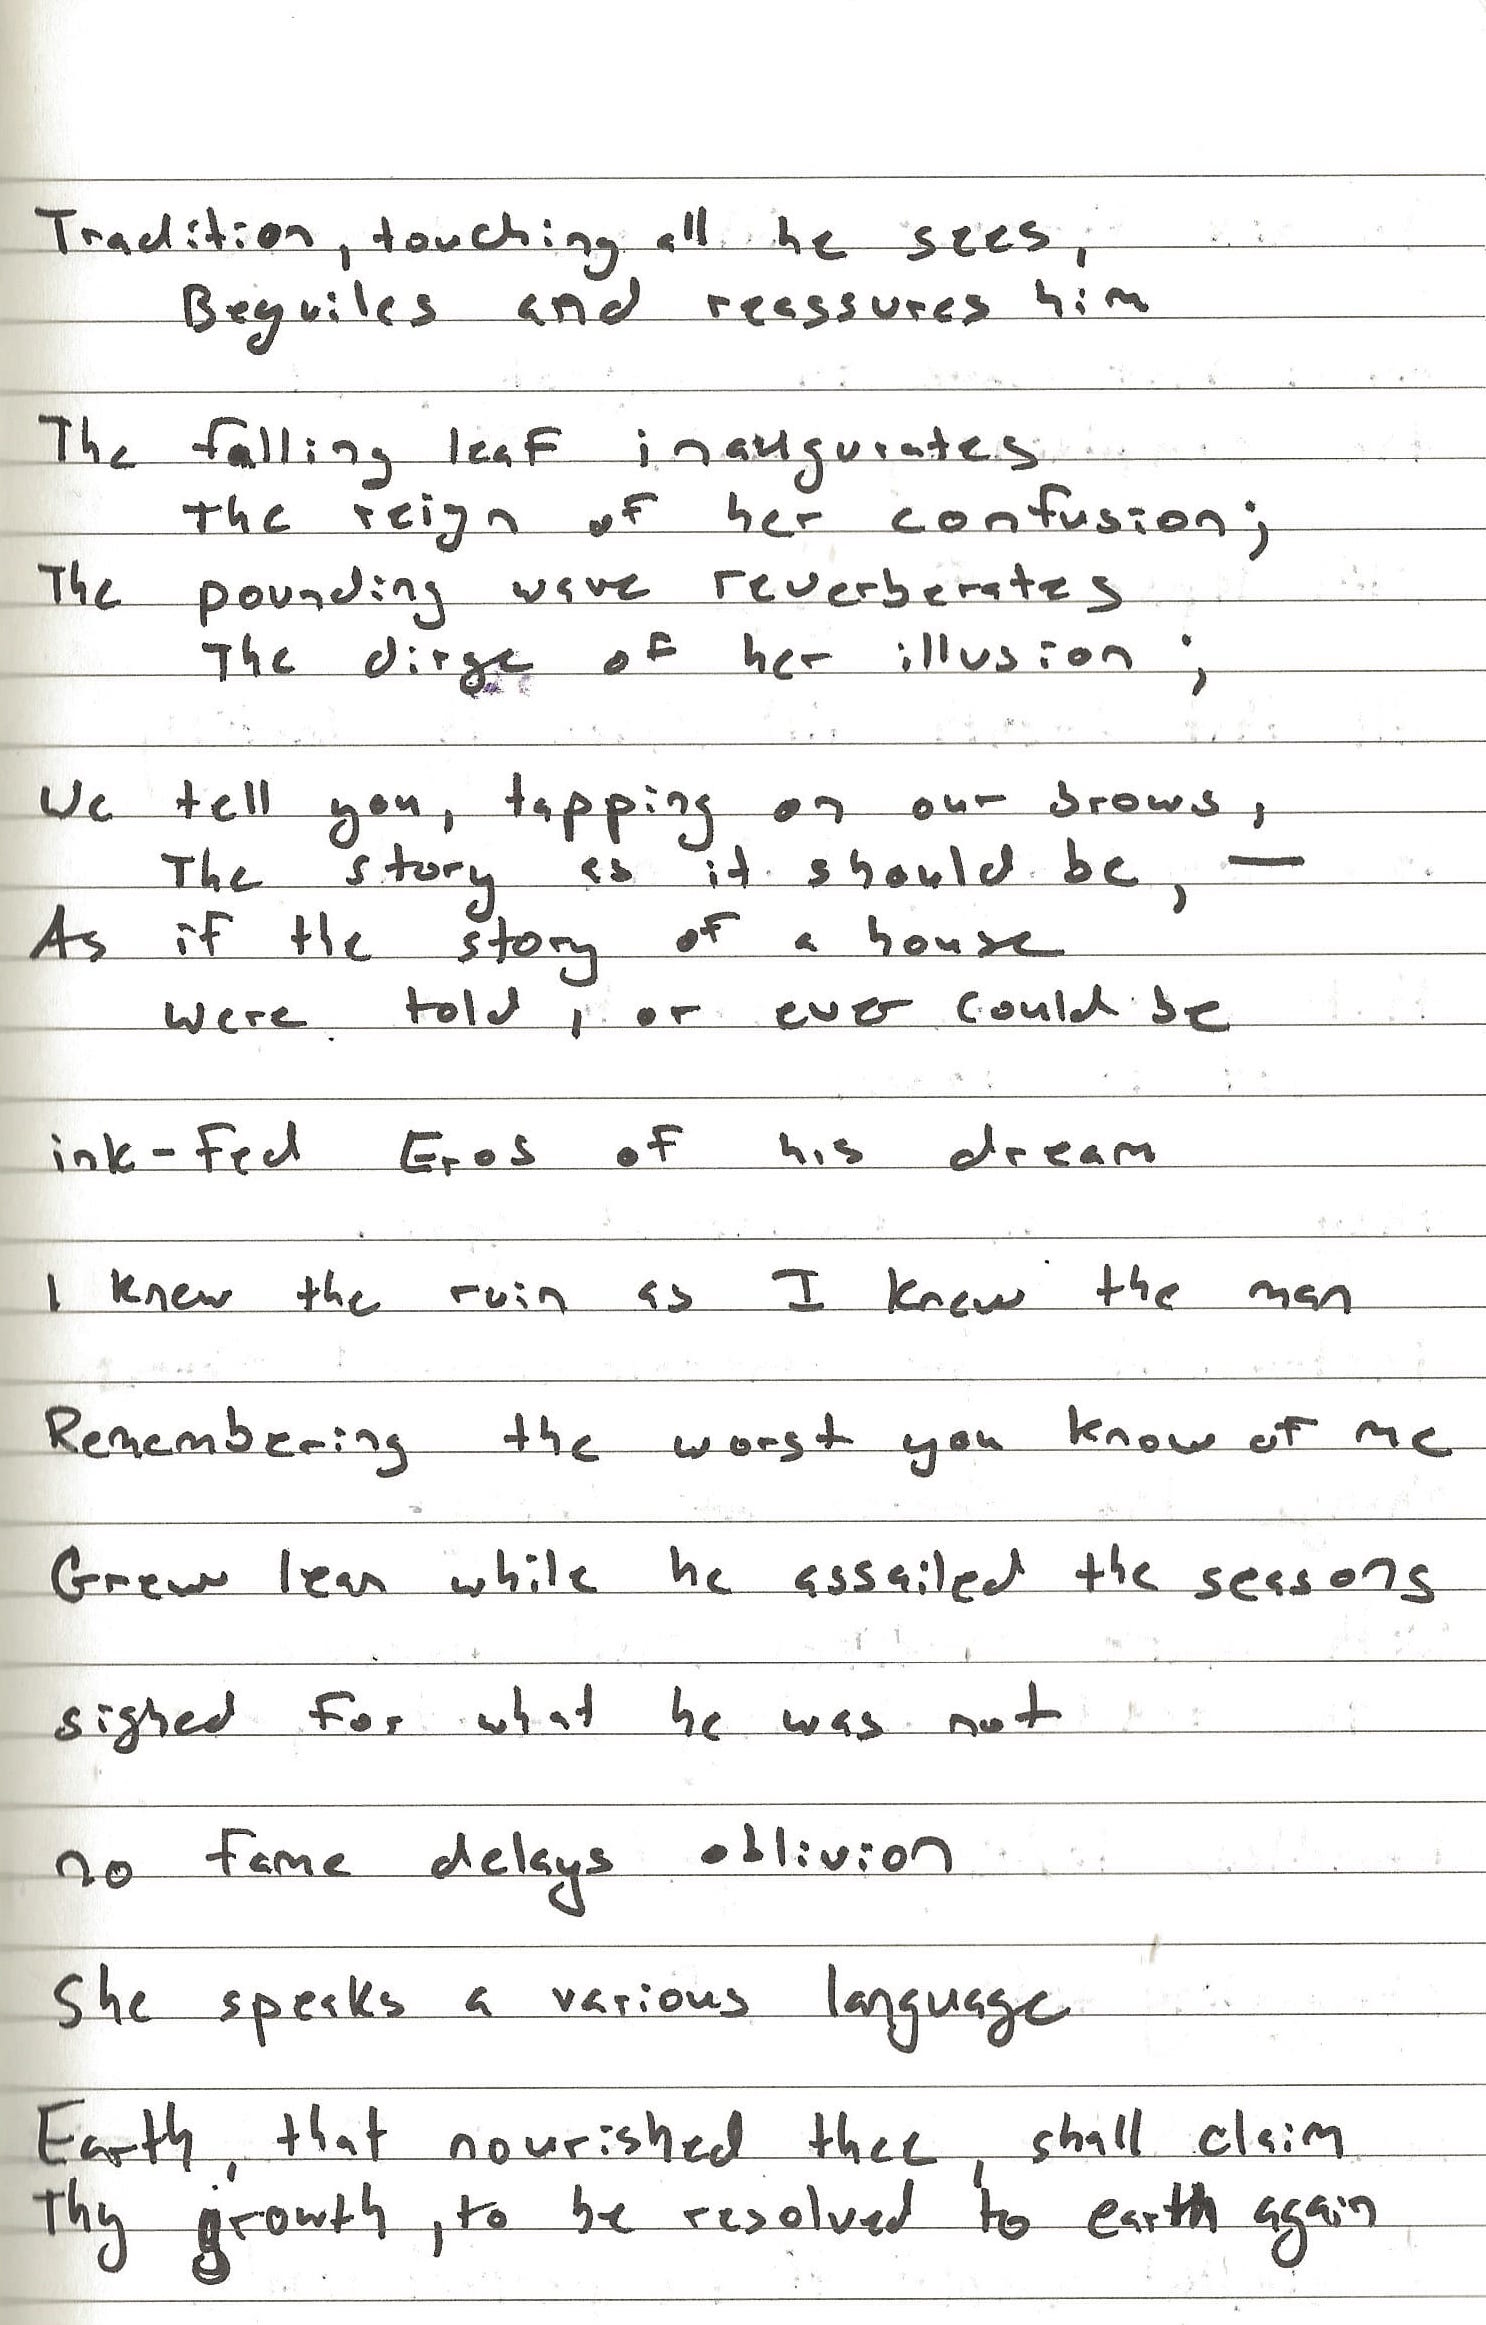 Tradition, touching all he sees,
Beguiles and reassures him
The falling leaf inaugurates
The reign of her confusion;
The pounding wave reverberates
The dirge of her illusion;
We tell you, tapping on our brows,
The story as it should be, —
As if the story of a house
Were told, or ever could be
ink-fed Eros of his dream
I knew the ruin as I knew the man
Remembering the worst you know of me
Grew lean while he assailed the seasons
sighed for what he was not
no fame delays oblivion
She speaks a various language
Earth, that nourished thee, shall claim
Thy growth, to be resolved to earth again